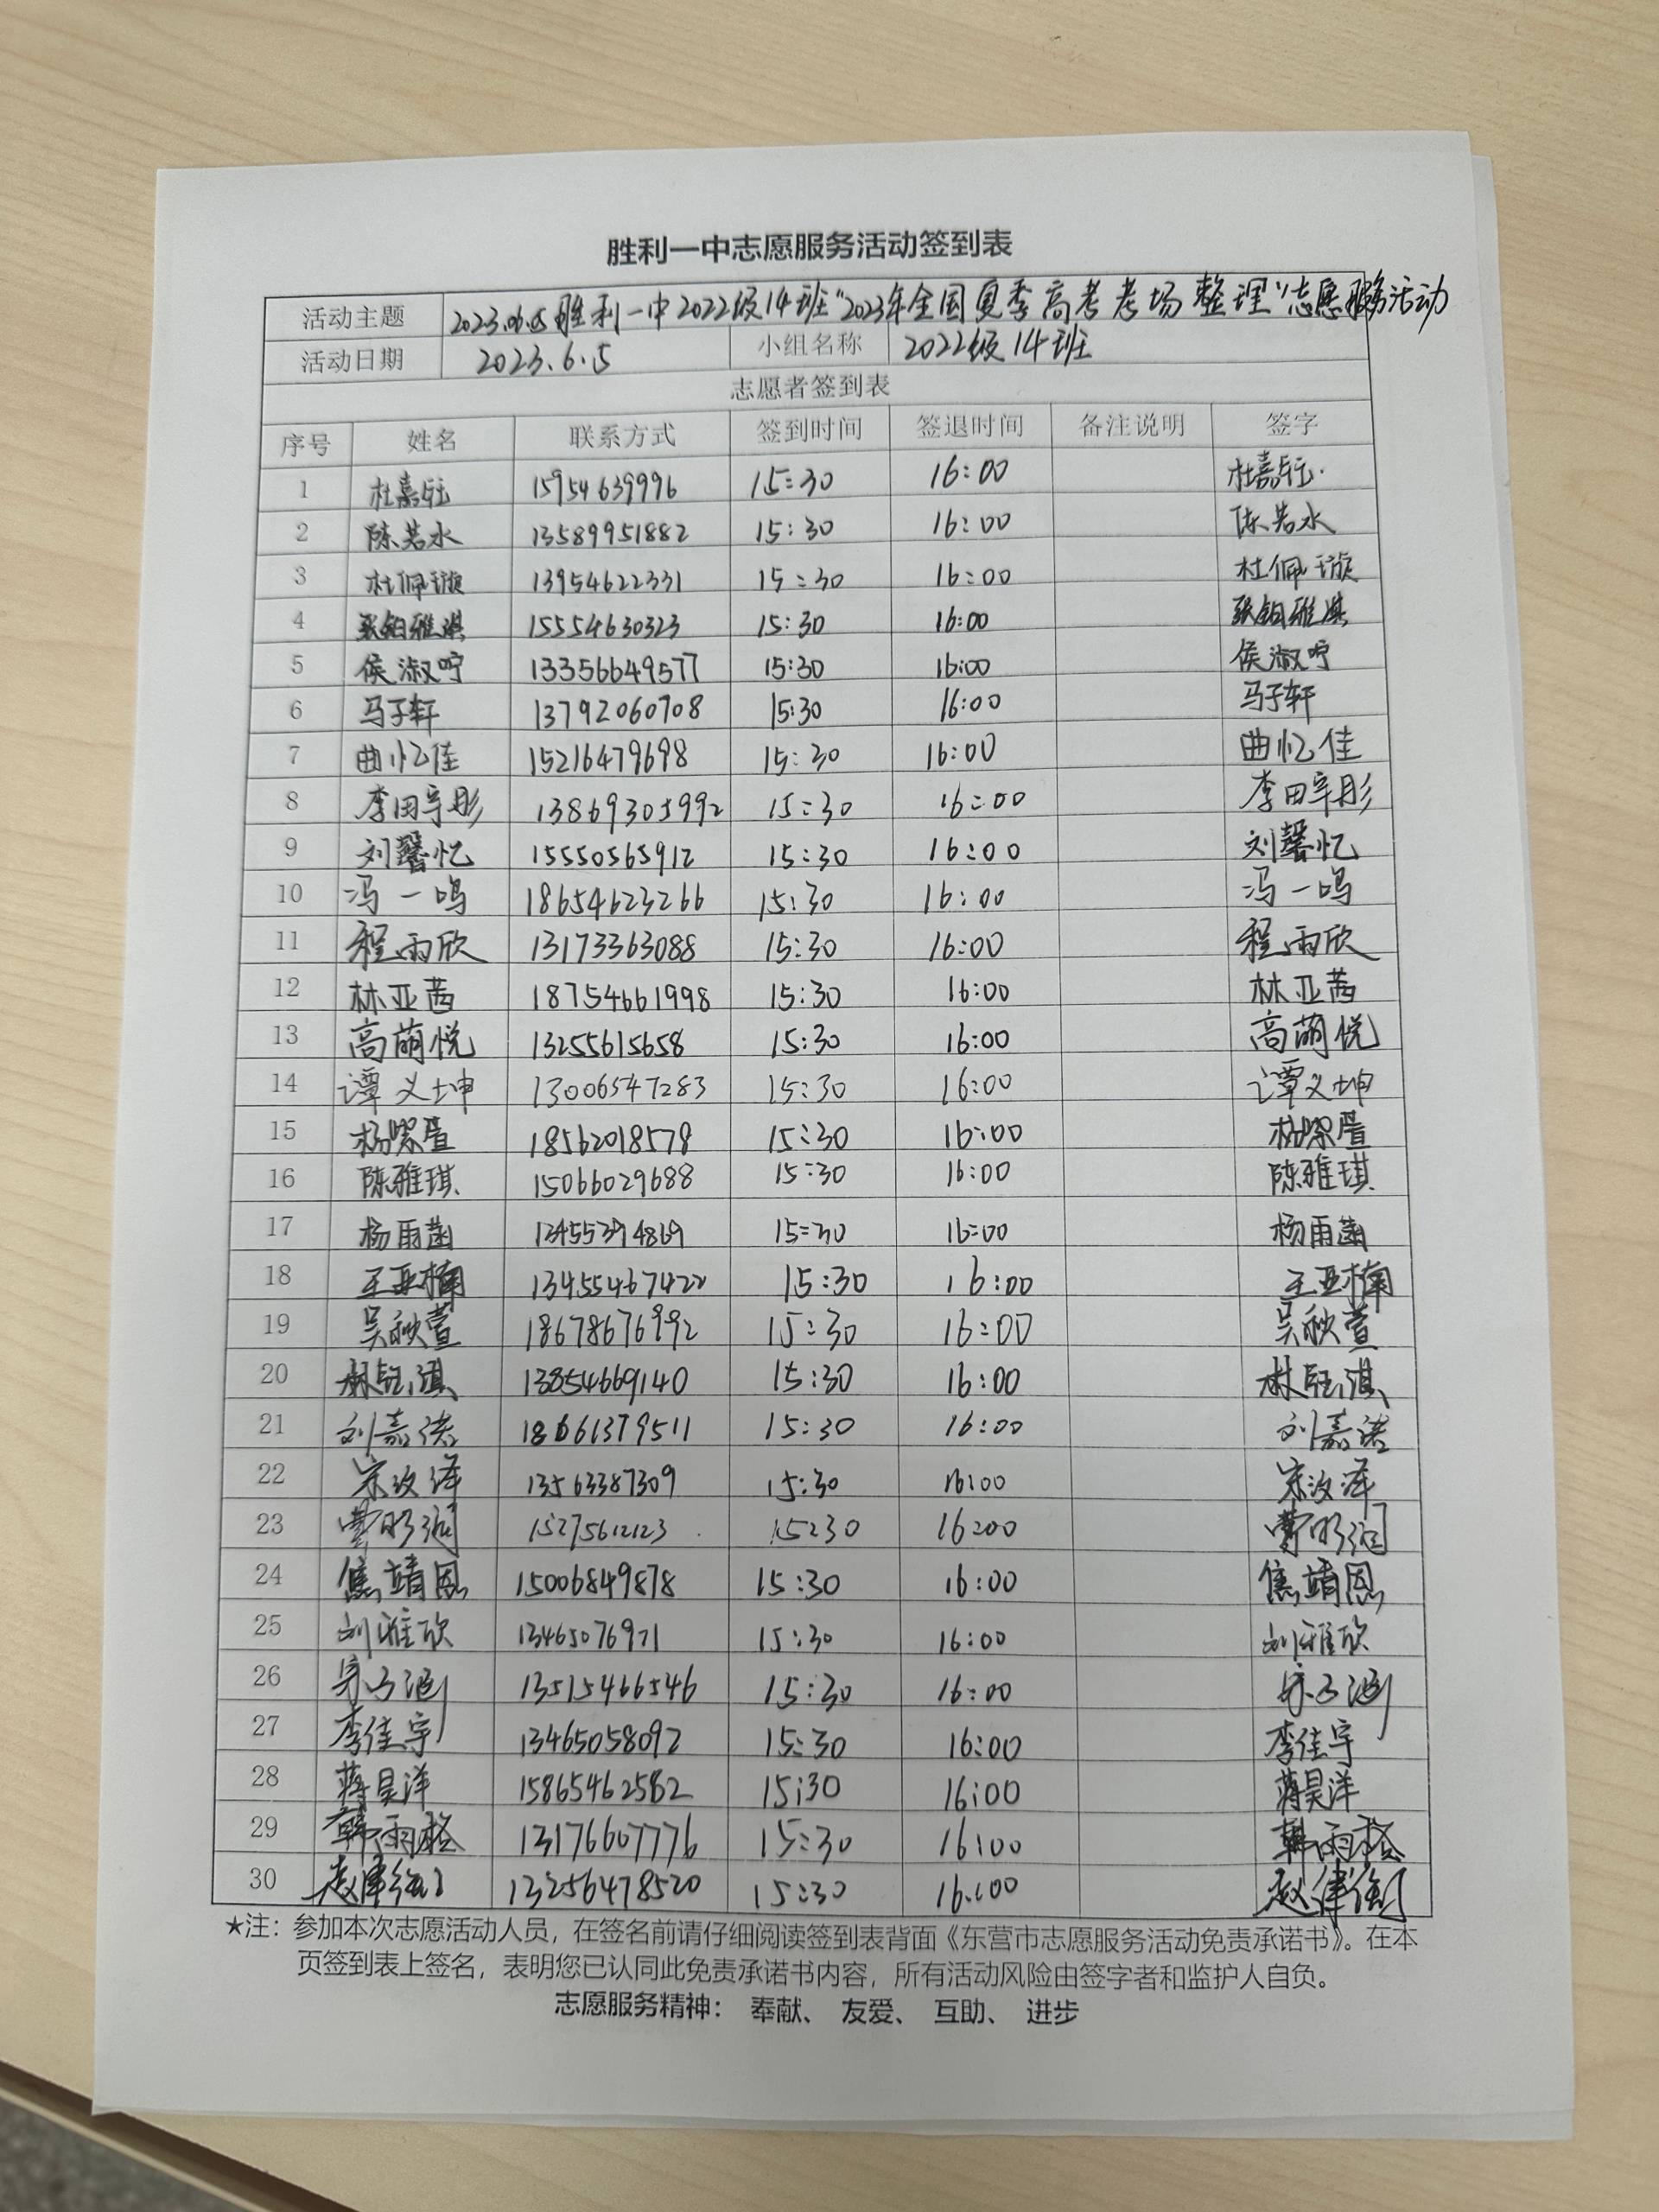 胜利一中志愿服务活动签到表
活动主题 2023.06.05胜利一中2022级14班"2023年全国夏季高考考场整理"志愿服务活动
活动日期 2023.6.5 小组名称 2022级14班
志愿者签到表
序号 姓名 联系方式 签到时间 签退时间 备注说明 签字
1 杜嘉钰 15954639996 15:30 16:00 杜嘉钰
2 陈若水 13589951882 15:30 16:00 陈若水
3 杜佩璇 13954622331 15:30 16:00 杜佩璇
4 张铂雅淇 15554630323 15:30 16:00 张铂雅淇
5 侯淑咛 13356649577 15:30 16:00 侯淑咛
6 马子轩 13792060708 15:30 16:00 马子轩
7 曲忆佳 15216479698 15:30 16:00 曲忆佳
8 李田宇彤 13869305992 15:30 16:00 李田宇彤
9 刘馨忆 15550565912 15:30 16:00 刘馨忆
10 冯一鸣 18654623266 15:30 16:00 冯一鸣
11 程雨欣 13173363088 15:30 16:00 程雨欣
12 林亚茜 18754661998 15:30 16:00 林亚茜
13 高萌悦 13255615658 15:30 16:00 高萌悦
14 谭义坤 13006547283 15:30 16:00 谭义坤
15 18562018578 15:30 16:00
16 陈雅琪 15066029688 15:30 16:00 陈雅琪
17 杨雨菡 13455394869 15:30 16:00 杨雨菡
18 王亚楠 13455467422 15:30 16:00 王亚楠
19 吴秋萱 18678676992 15:30 16:00 吴秋萱
20 林钰淇 13854669140 15:30 16:00 林钰淇
21 刘嘉诺 18661379511 15:30 16:00 刘嘉诺
22 宋汶泽 13563387309 15:30 16:00 宋汶泽
23 曹明润 15275612123 15:30 16:00 曹明润
24 焦靖恩 15006849878 15:30 16:00 焦靖恩
25 刘雅欣 13465076971 15:30 16:00 刘雅欣
26 宋子涵 13515466546 15:30 16:00 宋子涵
27 李佳宇 13465058092 15:30 16:00 李佳宇
28 蒋昊洋 15865462582 15:30 16:00 蒋昊洋
29 韩雨格 13176607776 15:30 16:00 韩雨格
30 13256478520 15:30 16:00
★注：参加本次志愿活动人员，在签名前请仔细阅读签到表背面《东营市志愿服务活动免责承诺书》。在本
页签到表上签名，表明您已认同此免责承诺书内容，所有活动风险由签字者和监护人自负。
志愿服务精神： 奉献、 友爱、 互助、 进步